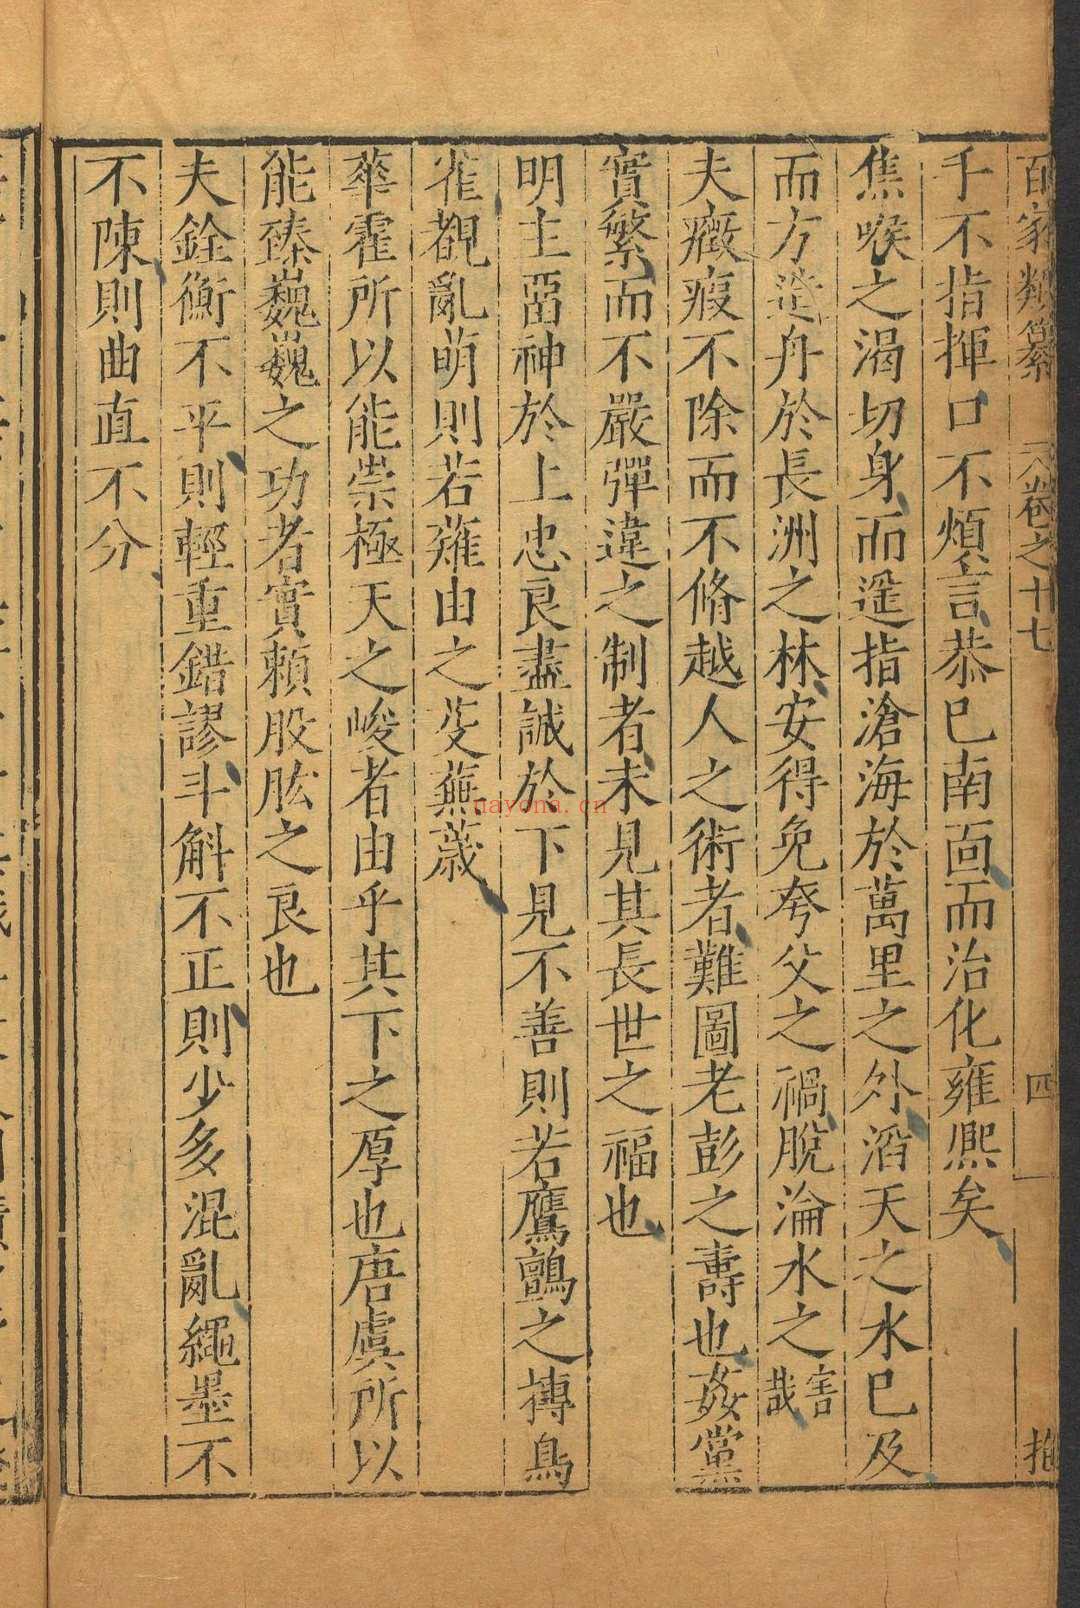 百家類纂 卷之十七 四
手不指揮口不煩言恭巳南面而治化雍熙矣
焦喉之渴切身而遥指滄海於萬里之外滔天之水巳及
而方造舟於長洲之林安得免夸父之禍脫淪水之害哉
夫癥瘕不除而不脩越人之術者難圖老彭之壽也姦黨
實繁而不嚴彈違之制者未見其長世之福也
明主畱神於上忠良盡誠於下見不善則若鷹鸇之搏鳥
雀覩亂萌則若薙由之芟蕪薉
華霍所以能崇極天之峻者由乎其下之厚也唐虞所以
能臻巍巍之功者實賴股肱之良也
夫銓衡不平則輕重錯謬斗斛不正則少多混亂繩墨不
不陳則曲直不分
nayona.cn